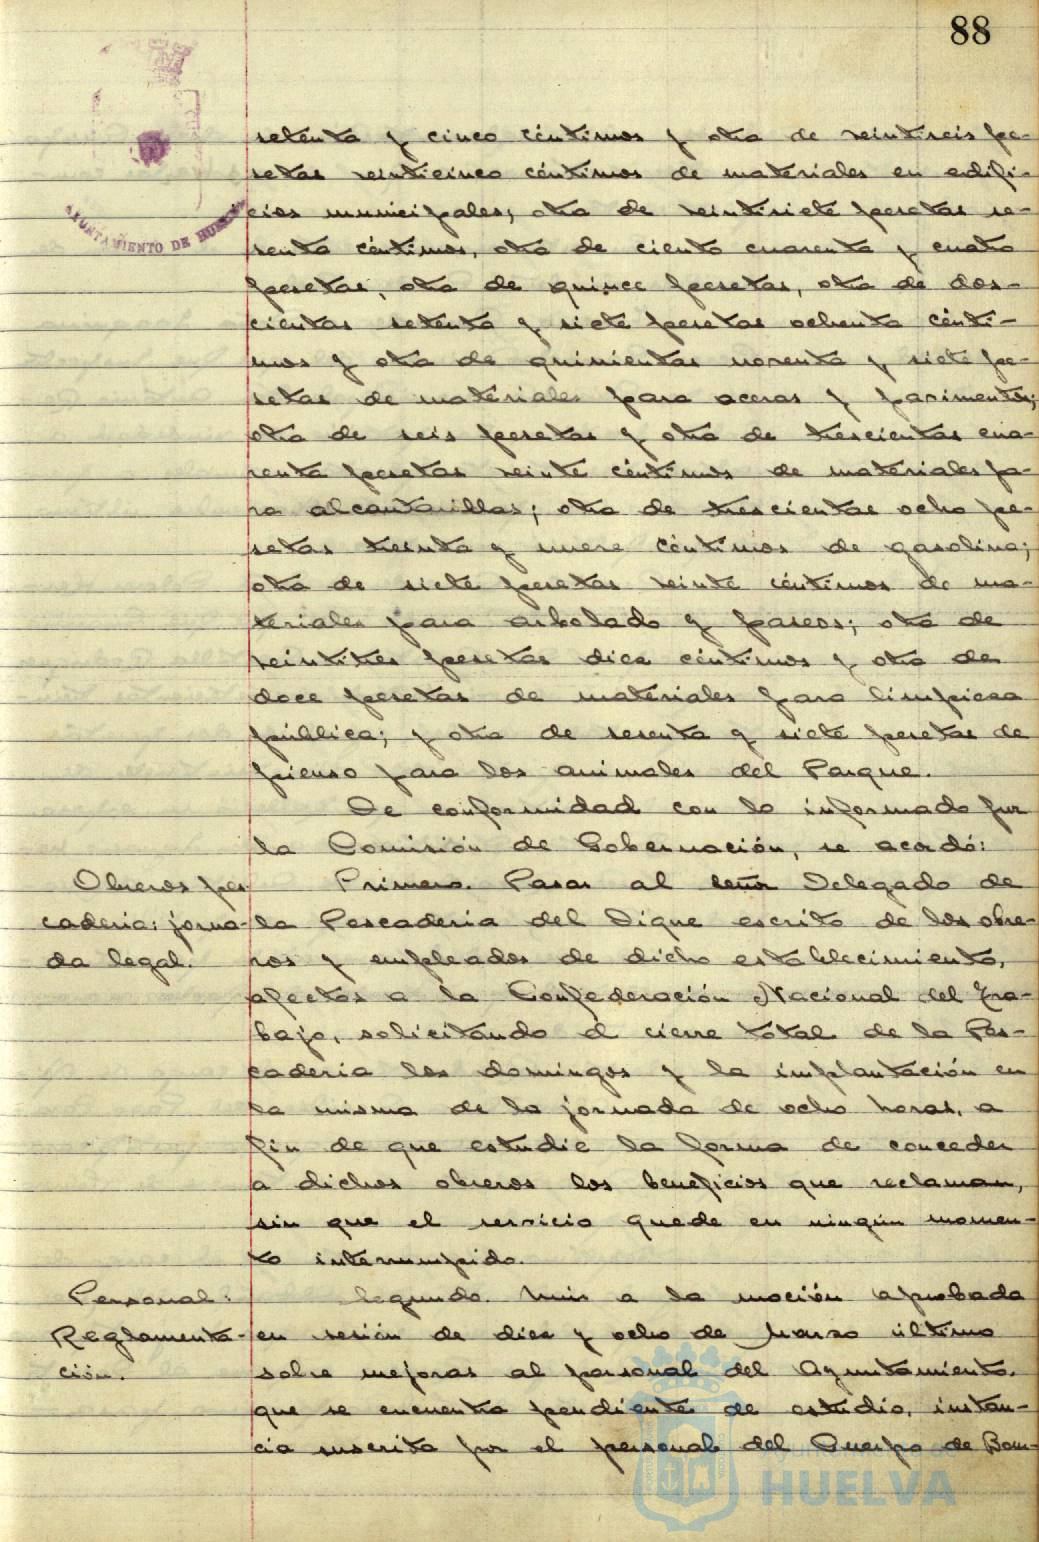 88
AYUNTAMIENTO DE HUELVA
setenta y cinco céntimos y otra de veintiseis pe-
setas veinticinco céntimos de materiales en edifi-
cios municipales; otra de veintisiete pesetas se-
senta céntimos, otra de ciento cuarenta y cuatro
pesetas, otra de quince pesetas, otra de dos-
cientas setenta y siete pesetas ochenta cénti-
mos y otra de quinientas noventa y siete pe-
setas de materiales para aceras y pavimentos;
otra de seis pesetas y otra de trescientas cua-
renta pesetas veinte céntimos de materiales pa-
ra alcantarillas; otra de trescientas ocho pe-
setas treinta y nueve céntimos de gasolina;
otra de siete pesetas veinte céntimos de ma-
teriales para arbolado y paseos; otra de
veintitres pesetas diez céntimos y otra de
doce pesetas de materiales para limpieza
pública; y otra de sesenta y siete pesetas de
pienso para los animales del Parque.
De conformidad con lo informado por
la Comisión de Gobernación, se acordó:
Obreros pes-
caderia: jorna-
da legal.
Primero. Pasar al señor Delegado de
la Pescaderia del Dique escrito de los obre-
ros y empleados de dicho establecimiento,
afectos a la Confederación Nacional del Tra-
bajo, solicitando el cierre total de la Pes-
caderia los domingos y la implantación en
la misma de la jornada de ocho horas, a
fin de que estudie la forma de conceder
a dichos obreros los beneficios que reclaman,
sin que el servicio quede en ningún momen-
to interrumpido.
Personal:
Reglamenta-
ción.
Segundo. Unir a la moción aprobada
en sesión de diez y ocho de Marzo último
sobre mejoras al personal del Ayuntamiento,
que se encuentra pendiente de estudio, instan-
cia suscrita por el personal del Cuerpo de Bom-
Ayuntamiento de
HUELVA